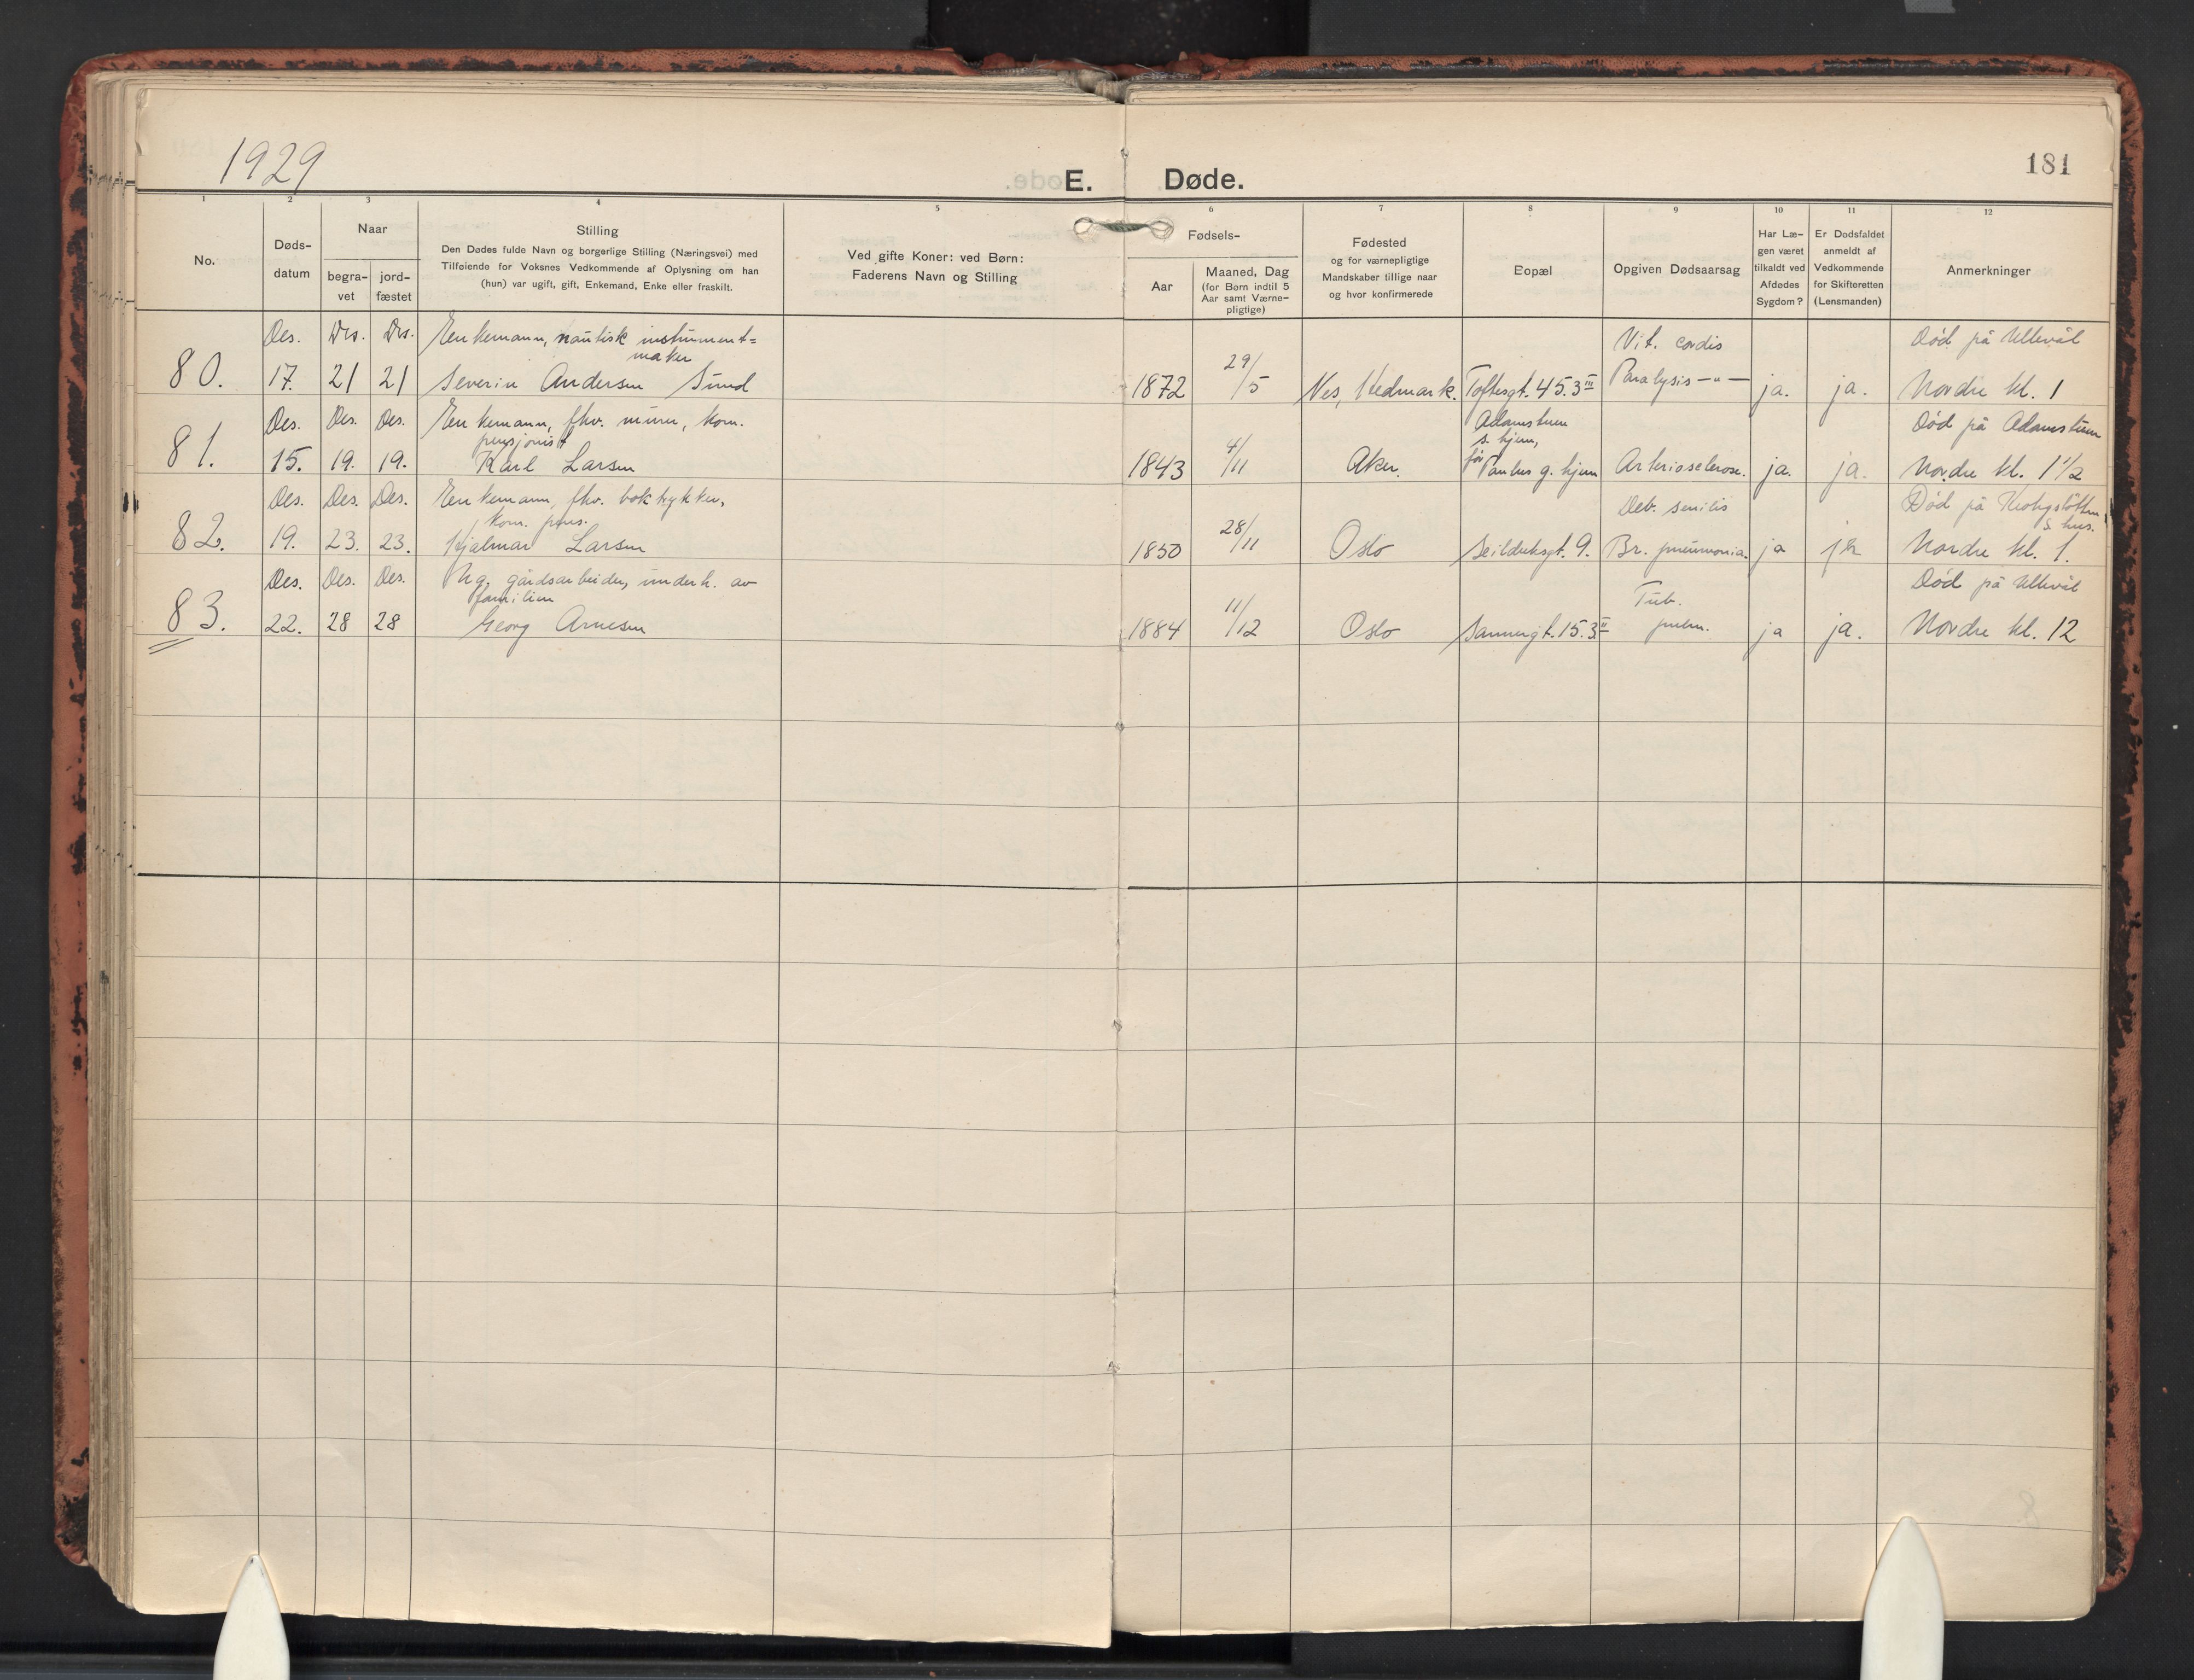 1929
E. Døde.
181
1 2 3 4 5 6 7 8 9 10 11 12
No.
Døds-
datum
Naar
begra-
vet
jord-
fæstet
Stilling
Den Dødes fulde Navn og borgerlige Stilling (Næringsvei) med
Tilføiende for Voksnes Vedkommende af Oplysning om han
(hun) var ugift, gift, Enkemand, Enke eller fraskilt.
Ved gifte Koner: ved Børn:
Faderens Navn og Stilling
Fødsels-
Aar
Maaned, Dag
(for Børn indtil 5
Aar samt Værne-
pligtige)
Fødested
og for værnepligtige
Mandskaber tillige naar
og hvor konfirmerede
Bopæl
Opgiven Dødsaarsag
Har Læ-
gen været
tilkaldt ved
Afdødes
Sygdom?
Er Dødsfaldet
anmeldt af
Vedkommende
for Skifteretten
(Lensmanden)
Anmerkninger
Des. Des. Des. Enkemann, nautisk instrument= Vit. cordis Død på Ullevål
maker
80. 17. 21 21 Severin Andersen Sund 1872 29/5 Nes, Hedmark. Toftesgt. 45.3 III Paralysis —"— ja. ja. Nordre kl. 1
Des. Des. Des. Enkemann, fhv. murer, kom. Adamstuen Død på Adamstuen
pensjonist s. hjem,
81. 15. 19. 19. Karl Larsen 1843 4/11 Aker. før Paulus g. hjem Arteriosclerose. ja. ja. Nordre kl. 1 1/2
Des. Des. Des. Enkemann, fhv. boktrykker, Deb. senilis Død på
kom. pens. s. hus.
82. 19. 23. 23. Hjalmar Larsen 1850 28/11 Oslo Seilduksgt. 9. Br. pneumonia. ja ja Nordre kl. 1.
Des. Des. Des. Ug. gårdsarbeider, underh. av Tub. Død på Ullevål
familien
83. 22. 28 28 Georg Arnesen 1884 11/12 Oslo Sannergt. 15.3 II pulm. ja ja. Nordre kl. 12